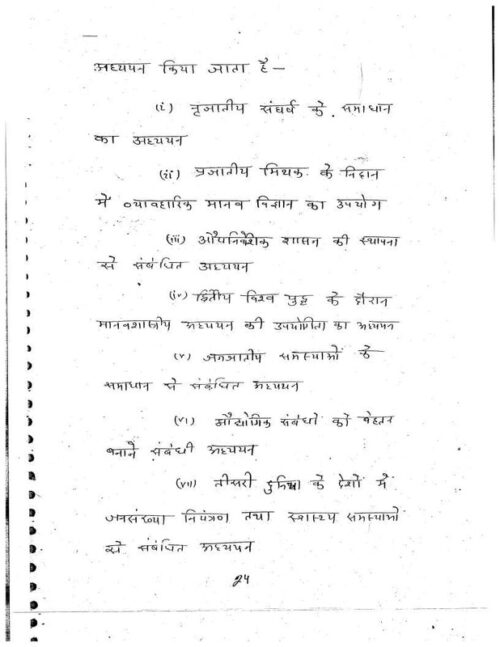 अध्ययन किया जाता है —
(i) नृजातीय संघर्ष के समाधान
का अध्ययन
(ii) प्रजातीय मिथक के निदान
में व्यावहारिक मानव विज्ञान का उपयोग
(iii) औपनिवेशिक शासन की स्थापना
से संबंधित अध्ययन
(iv) द्वितीय विश्व युद्ध के दौरान
मानवशास्त्रीय अध्ययन की उपयोगिता का अध्ययन
(v) जनजातीय समस्याओं के
समाधान से संबंधित अध्ययन
(vi) औद्योगिक संबंधों को बेहतर
बनाने संबंधी अध्ययन
(vii) तीसरी दुनिया के देशों में
जनसंख्या नियंत्रण तथा स्वास्थ्य समस्याओं
से संबंधित अध्ययन
24